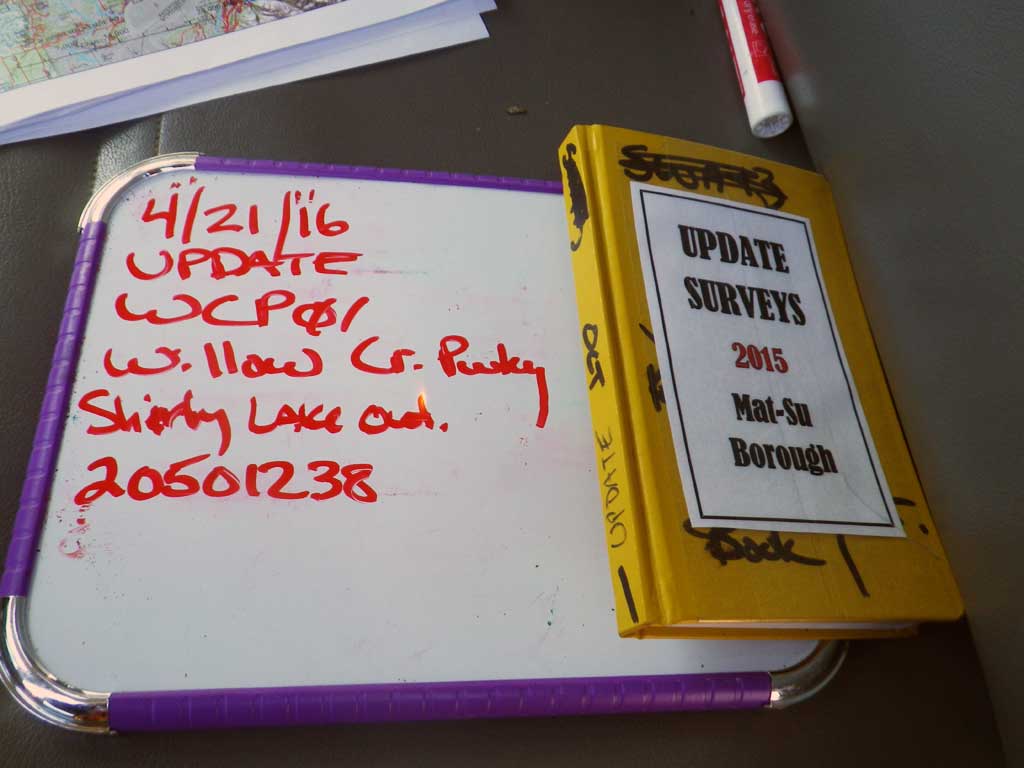 4/21/16
UPDATE
WCPØ1
Willow Cr. Pwky
Shirley Lake out.
20501238
UPDATE
SURVEYS
2015
Mat-Su
Borough
Book 1
UPDATE